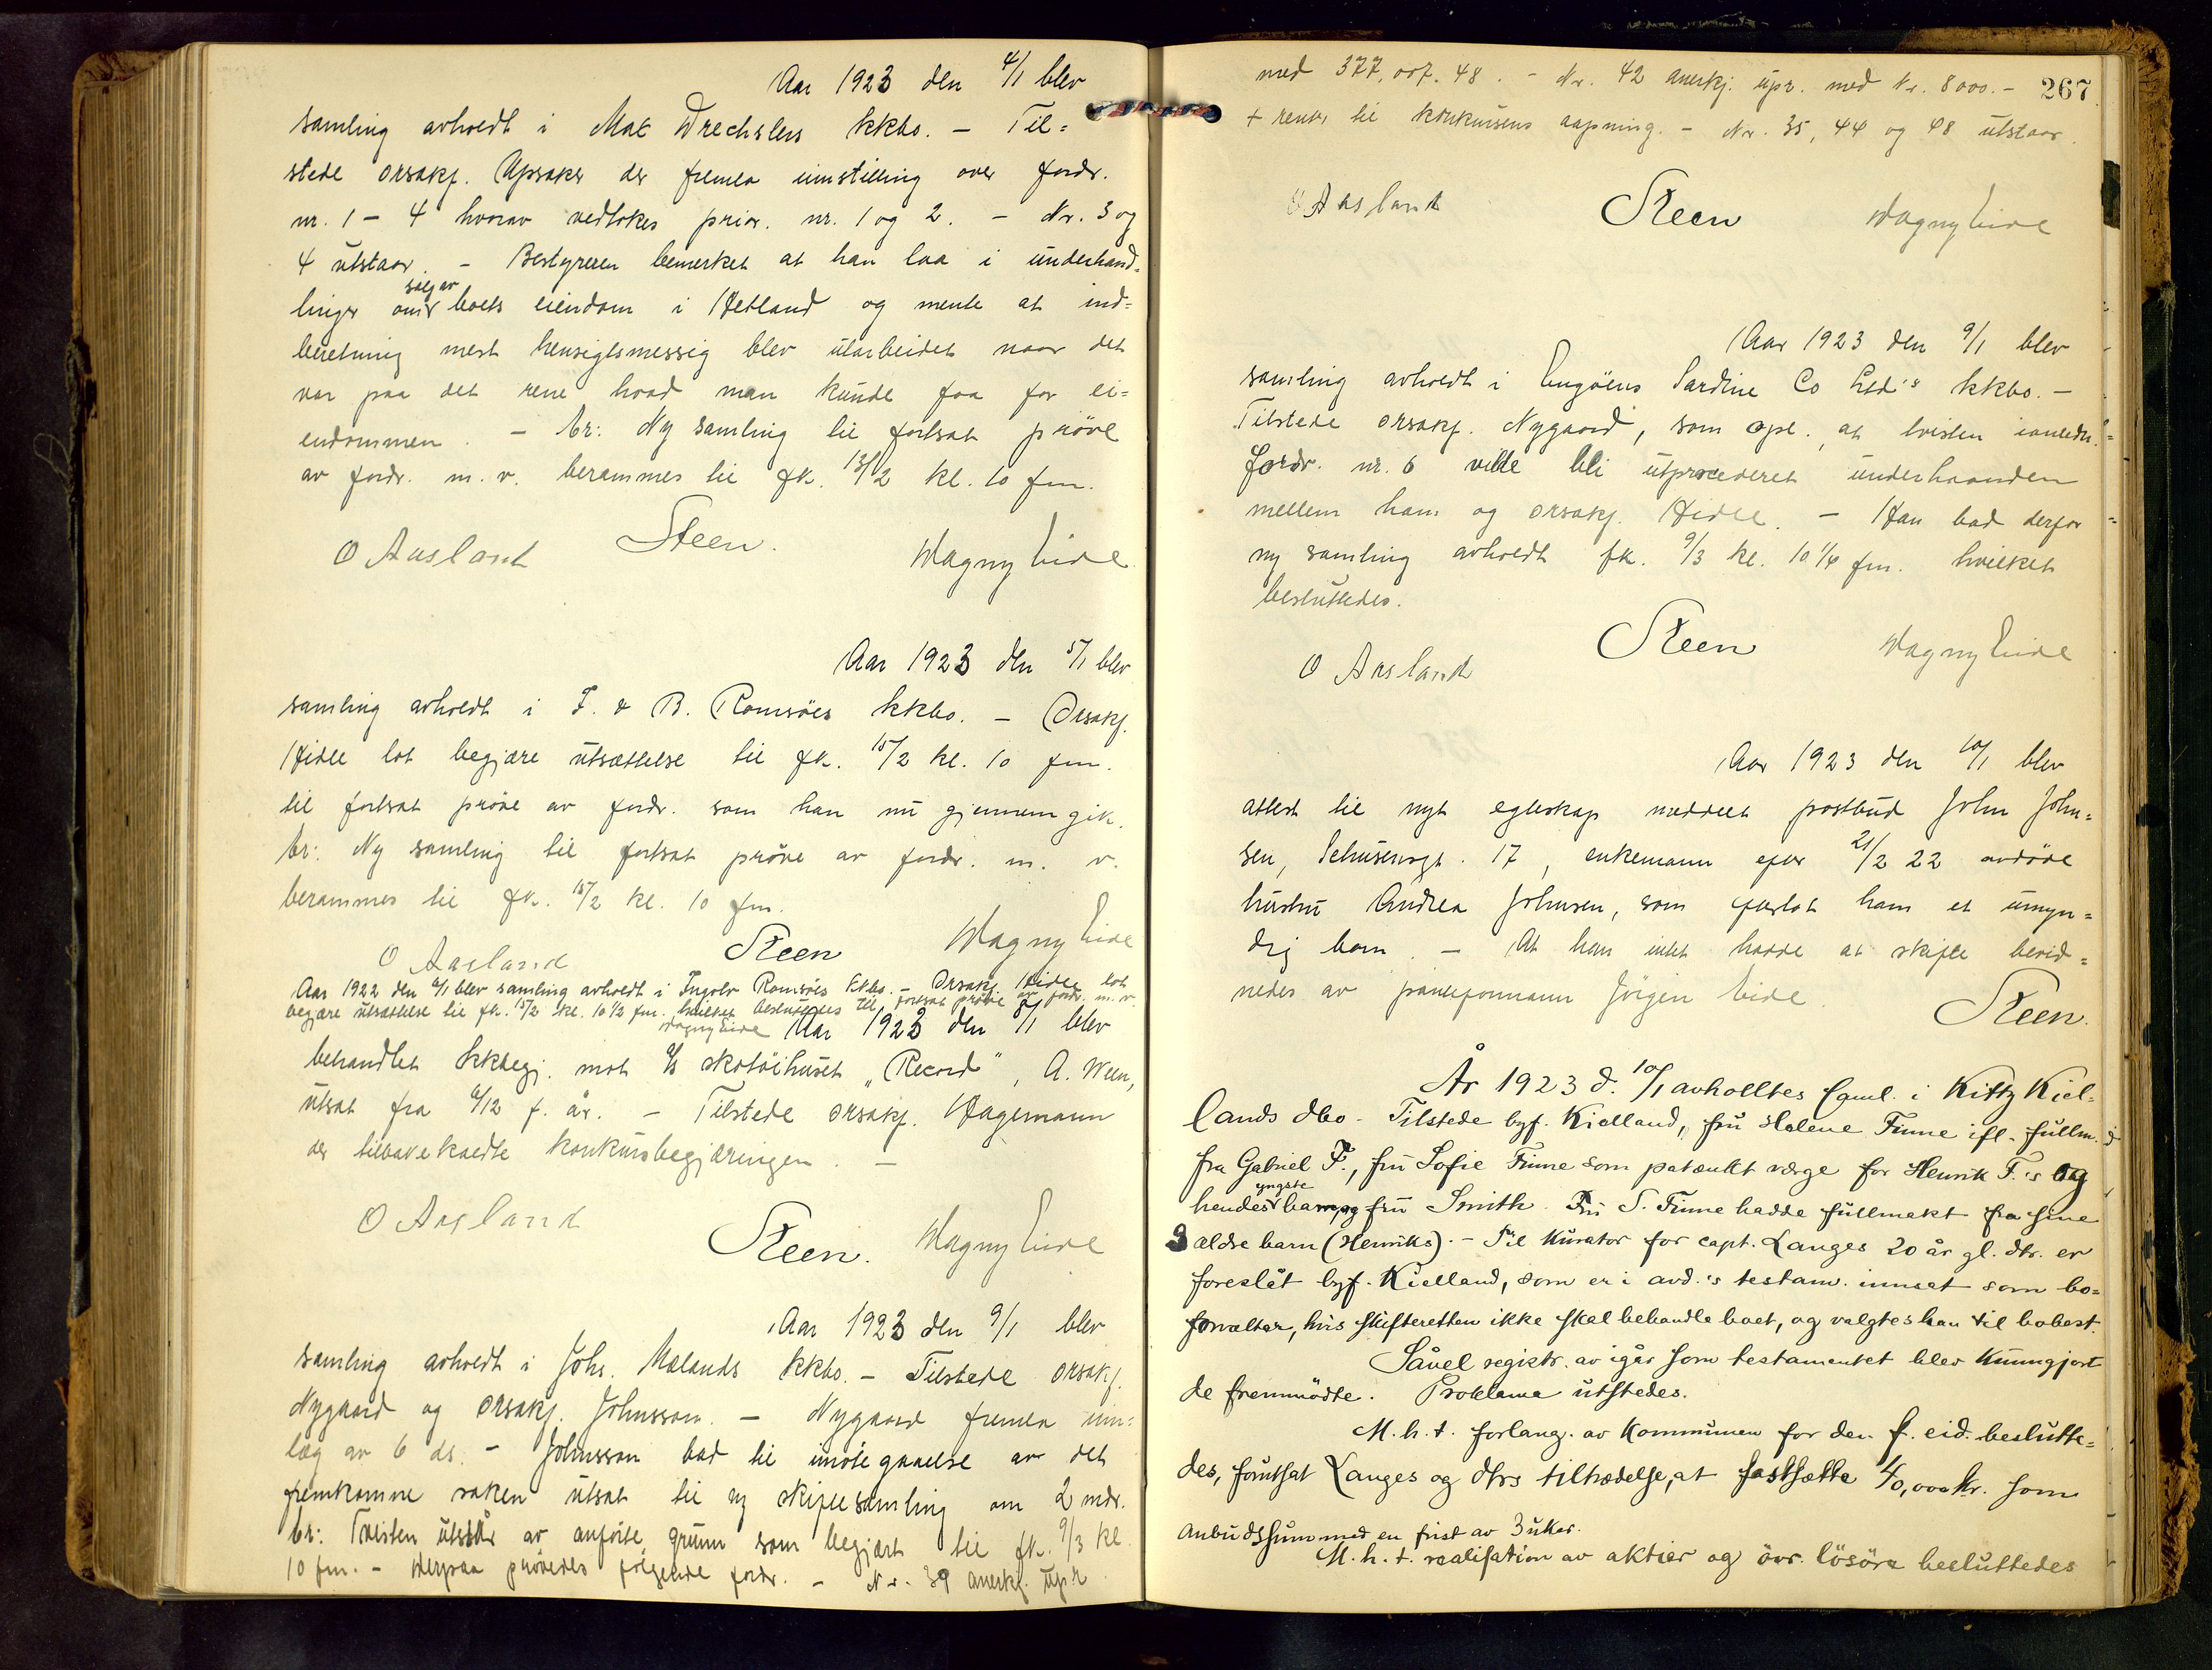 Aar 1923 den 4/1 blev
samling avholdt i Max Drechslers kkbo. – Til=
stede orsakf. Opsaker der fremla innstilling over fordr.
nr. 1 – 4 hvorav vedtokes prior. nr. 1 og 2. – Nr. 3 og
4 utstaar. – Bestyreren bemerket at han laa i underhand=
linger om salg av boets eiendom i Hetland og mente at ind=
beretning mest hensigtsmessig blev utarbeidet naar det
var paa det rene hvad man kunde faa for ei=
endommen. – br: Ny samling til fortsat prøve
av fordr. m. v. berammes til fk. 13/2 kl. 10 fm.
O Aasland Steen. Magny Eide
Aar 1923 den 5/1 blev
samling avholdt i F. & B. Ramsöes kkbo. – Orsakf.
Hidle lot begjære utsættelse til fk. 15/2 kl. 10 fm.
til fortsat prøve av fordr. som han nu gjennemgik.
br: Ny samling til fortsat prøve av fordr. m. v.
berammes til fk. 15/2 kl. 10 fm.
O Aasland Steen Magny Eide
Aar 1922 den 6/1 blev samling avholdt i Ingolv Ramsöes kkbo. – Orsakf. Hidle lot
begjære utsættelse til fk. 15/2 kl. 10 1/2 fm. hvilket besluttedes til fortsat prøve av fordr. m. v.
Magny Eide Aar 1923 den 8/1 blev
behandlet kkbegj. mot A/S skotöihuset „Record", A. Ween,
utsat fra 6/12 f. år. – Tilstede orsakf. Hagemann
der tilbakekaldte konkursbegjæringen. –
O Aasland Steen. Magny Eide
Aar 1923 den 9/1 blev
samling avholdt i Johs. Mælands kkbo. – Tilstede orsakf.
Nygaard og orsakf. Johnsson. – Nygaard fremla inn=
læg av 6 ds. – Johnsson bad til imötegaaelse av det
fremkomne saken utsat til ny skiftesamling om 2 mdr.
br: Tvisten utstår av anförte grunn som begjært til fk. 9/3 kl.
10 fm. – Herpaa prøvedes følgende fordr. – Nr. 39 anerkj. upr.
267
med 377,007.48. – Nr. 42 anerkj. upr. med Kr. 8000.–
+ renter til konkursens aapning. – Nr. 35, 44 og 48 utstaar.
O Aasland Steen Magny Eide
Aar 1923 den 9/1 blev
samling avholdt i Engöens Sardine Co Ltd's kkbo. –
Tilstede orsakf. Nygaard, som opl. at tvisten ianledn.
fordr. nr. 6 vilde bli utprocederet underhaanden
mellem ham og orsakf. Hidle. – Han bad derfor
ny samling avholdt fk. 9/3 kl. 10 1/4 fm. hvilket
besluttedes.
O Aasland Steen Magny Eide
Aar 1923 den 10/1 blev
attest til nyt egteskap meddelt postbud John John=
sen, 17, enkemann efter 21/2 22 avdöde
hustru Andrea Johnsen, som efterlot ham et umyn=
dig barn. – At han intet hadde at skifte bevid=
nedes av panteformann Jörgen Eide.
Steen.
År 1923 d. 10/1 avholdtes saml. i Kitty Kiel=
lands dbo. Tilstede byf. Kielland, fru Helene Finne ifl. fullm.
fra Gabriel F., fru Sofie Finne som patænkt værge for Henrik F.'s og
hendes yngste barn, og fru Smith. Fru S. Finne hadde fullmakt fra sine
3 ældre barn (Henriks). – Til kurator for capt. Langes 20 år gl. dtr. er
foreslåt byf. Kielland, som er i avd.'s testam. innsat som bo=
forvalter, hvis skifteretten ikke skal behandle boet, og valgtes han til bobest.
Såvel registr. av igår som testamentet blev kunngjort
de fremmödte. Proklama utstedes.
M. h. t. forlang. av kommunen for den f. eid. beslutte=
des, forutsat Langes og dtrs tiltrædelse, at fastsætte 40,000 kr. som
anbudssum med en frist av 3 uker.
M. h. t. realisation av aktier og övr. lösöre besluttedes